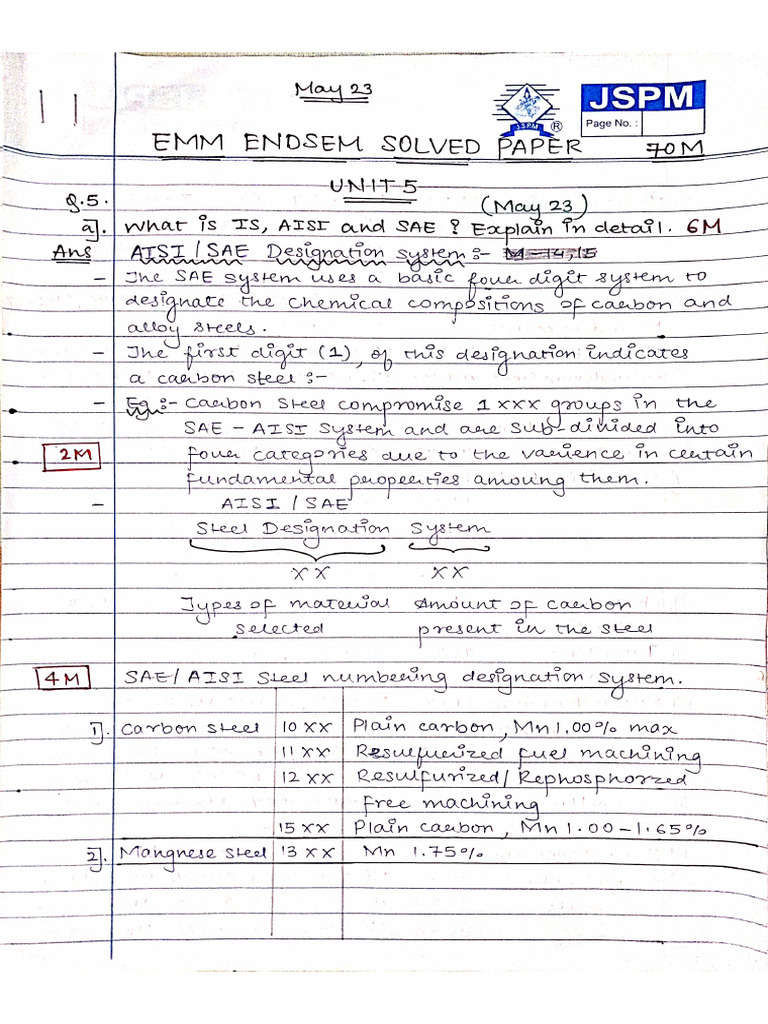 May 23
11
JSPM
JSPM ®
Page No. :
EMM ENDSEM SOLVED PAPER 70M
UNIT 5
Q.5. (May 23)
a]. What is IS, AISI and SAE ? Explain in detail. 6M
Ans AISI / SAE Designation system :- M-14,15
- The SAE system uses a basic four digit system to
designate the chemical compositions of carbon and
alloy steels.
- The first digit (1), of this designation indicates
a carbon steel :-
- Eg :- Carbon steel compromise 1xxx groups in the
SAE - AISI system and are sub-divided into
2M four categories due to the varience in certain
fundamental properties amoung them.
- AISI / SAE
Steel Designation System
XX XX
Types of material Amount of carbon
selected present in the steel
4M SAE/ AISI steel numbering designation system.
1]. Carbon steel 10 XX Plain carbon, Mn 1.00% max
11 XX Resulfurized fuel machining
12 XX Resulfurized/ Rephosphorzed
free machining
15 XX Plain carbon, Mn 1.00-1.65%
2]. Mangnese steel 13 XX Mn 1.75%